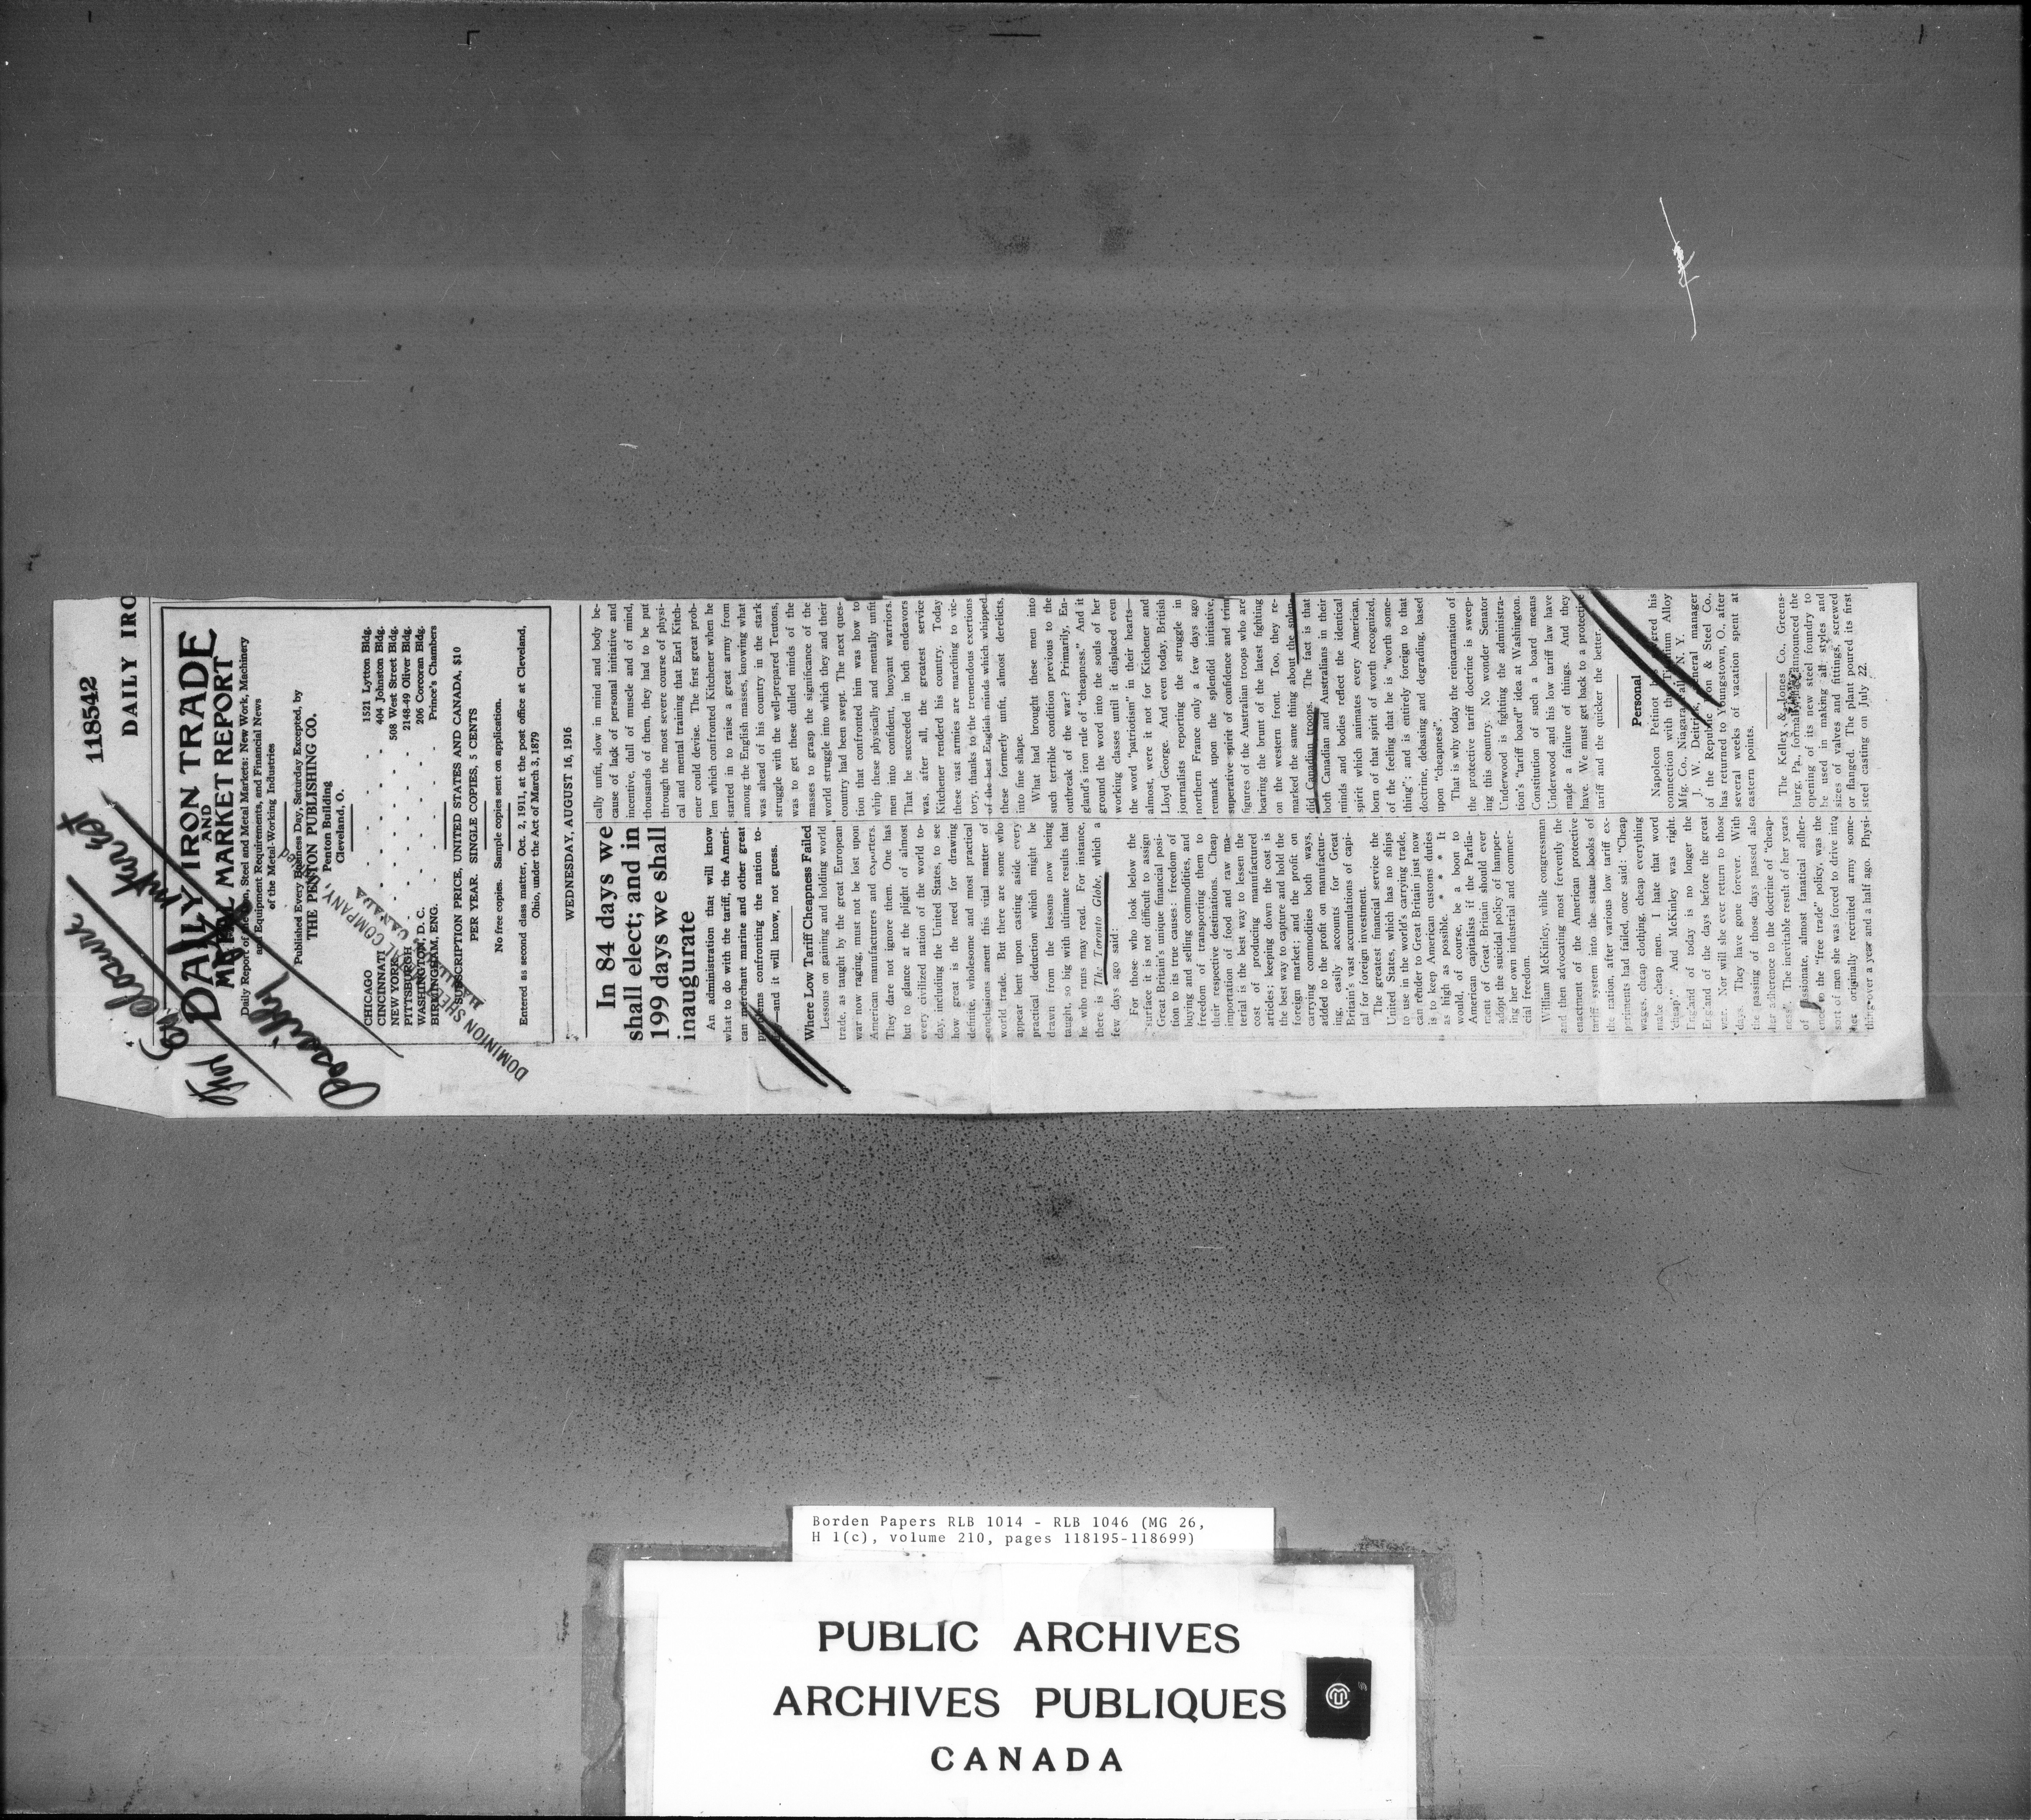 118542
DAILY IRO
Enclosure
Possibly
DAILY IRON TRADE
AND
METAL MARKET REPORT
Daily Report of the Iron, Steel and Metal Markets: New Work, Machinery
and Equipment Requirements, and Financial News
of the Metal-Working Industries
Published Every Business Day, Saturday Excepted, by
THE PENTON PUBLISHING CO.
Penton Building
Cleveland, O.
CHICAGO - - - - 1521 Lytton Bldg.
CINCINNATI - - - 404 Johnston Bldg.
NEW YORK - - - 508 West Street Bldg.
PITTSBURGH - - - 2148-49 Oliver Bldg.
WASHINGTON, D. C. - - 206 Corcoran Bldg.
BIRMINGHAM, ENG. - Prince's Chambers
SUBSCRIPTION PRICE, UNITED STATES AND CANADA, $10
PER YEAR. SINGLE COPIES, 5 CENTS
No free copies. Sample copies sent on application.
Entered as second class matter, Oct. 2, 1911, at the post office at Cleveland,
Ohio, under the Act of March 3, 1879
DOMINION STEEL COMPANY,
CANADA
WEDNESDAY, AUGUST 16, 1916
In 84 days we
shall elect; and in
199 days we shall
inaugurate
An administration that will know
what to do with the tariff, the Ameri-
can merchant marine and other great
problems confronting the nation to-
day—and it will know, not guess.
Where Low Tariff Cheapness Failed
Lessons on gaining and holding world
trade, as taught by the great European
war now raging, must not be lost upon
American manufacturers and exporters.
They dare not ignore them. One has
but to glance at the plight of almost
every civilized nation of the world to-
day, including the United States, to see
how great is the need for drawing
definite, wholesome and most practical
conclusions anent this vital matter of
world trade. But there are some who
appear bent upon casting aside every
practical deduction which might be
drawn from the lessons now being
taught, so big with ultimate results that
he who runs may read. For instance,
there is The Toronto Globe, which a
few days ago said:
For those who look below the
surface it is not difficult to assign
Great Britain's unique financial posi-
tion to its true causes: freedom of
buying and selling commodities, and
freedom of transporting them to
their respective destinations. Cheap
importation of food and raw ma-
terial is the best way to lessen the
cost of producing manufactured
articles; keeping down the cost is
the best way to capture and hold the
foreign market; and the profit on
carrying commodities both ways,
added to the profit on manufactur-
ing, easily accounts for Great
Britain's vast accumulations of capi-
tal for foreign investment.
The greatest financial service the
United States, which has no ships
to use in the world's carrying trade,
can render to Great Britain just now
is to keep American customs duties
as high as possible. * * * It
would, of course, be a boon to
American capitalists if the Parlia-
ment of Great Britain should ever
adopt the suicidal policy of hamper-
ing her own industrial and commer-
cial freedom.
William McKinley, while congressman
and then advocating most fervently the
enactment of the American protective
tariff system into the statue books of
the nation, after various low tariff ex-
periments had failed, once said: "Cheap
wages, cheap clothing, cheap everything
make cheap men. I hate that word
'cheap.'" And McKinley was right.
England of today is no longer the
England of the days before the great
war. Nor will she ever return to those
days. They have gone forever. With
the passing of those days passed also
her adherence to the doctrine of "cheap-
ness." The inevitable result of her years
of passionate, almost fanatical adher-
ence to the "free trade" policy, was the
sort of men she was forced to drive into
her originally recruited army some-
thing over a year and a half ago. Physi-
cally unfit, slow in mind and body be-
cause of lack of personal initiative and
incentive, dull of muscle and of mind,
thousands of them, they had to be put
through the most severe course of physi-
cal and mental training that Earl Kitch-
ener could devise. The first great prob-
lem which confronted Kitchener when he
started in to raise a great army from
among the English masses, knowing what
was ahead of his country in the stark
struggle with the well-prepared Teutons,
was to get these dulled minds of the
masses to grasp the significance of the
world struggle into which they and their
country had been swept. The next ques-
tion that confronted him was how to
whip these physically and mentally unfit
men into confident, buoyant warriors.
That he succeeded in both endeavors
was, after all, the greatest service
Kitchener renderd his country. Today
these vast armies are marching to vic-
tory, thanks to the tremendous exertions
of the best English minds which whipped
these formerly unfit, almost derelicts,
into fine shape.
What had brought these men into
such terrible condition previous to the
outbreak of the war? Primarily, En-
gland's iron rule of "cheapness." And it
ground the word into the souls of her
working classes until it displaced even
the word "patriotism" in their hearts—
almost, were it not for Kitchener and
Lloyd George. And even today, British
journalists reporting the struggle in
northern France only a few days ago
remark upon the splendid initiative,
superative spirit of confidence and trim
figures of the Australian troops who are
bearing the brunt of the latest fighting
on the western front. Too, they re-
marked the same thing about the splen-
did Canadian troops. The fact is that
both Canadian and Australians in their
minds and bodies reflect the identical
spirit which animates every American,
born of that spirit of worth recognized,
of the feeling that he is "worth some-
thing"; and is entirely foreign to that
doctrine, debasing and degrading, based
upon "cheapness".
That is why today the reincarnation of
the protective tariff doctrine is sweep-
ing this country. No wonder Senator
Underwood is fighting the administra-
tion's "tariff board" idea at Washington.
Constitution of such a board means
Underwood and his low tariff law have
made a failure of things. And they
have. We must get back to a protective
tariff and the quicker the better.
Personal
Napoleon Petinot has severed his
connection with the Titanium Alloy
Mfg. Co., Niagara Falls, N. Y.
J. W. Deitrick, general manager
of the Republic Iron & Steel Co.,
has returned to Youngstown, O., after
several weeks of vacation spent at
eastern points.
The Kelley & Jones Co., Greens-
burg, Pa., formally announced the
opening of its new steel foundry to
be used in making all styles and
sizes of valves and fittings, screwed
or flanged. The plant poured its first
steel casting on July 22.
Borden Papers RLB 1014 - RLB 1046 (MG 26,
H 1(c), volume 210, pages 118195-118699)
PUBLIC ARCHIVES
ARCHIVES PUBLIQUES
CANADA